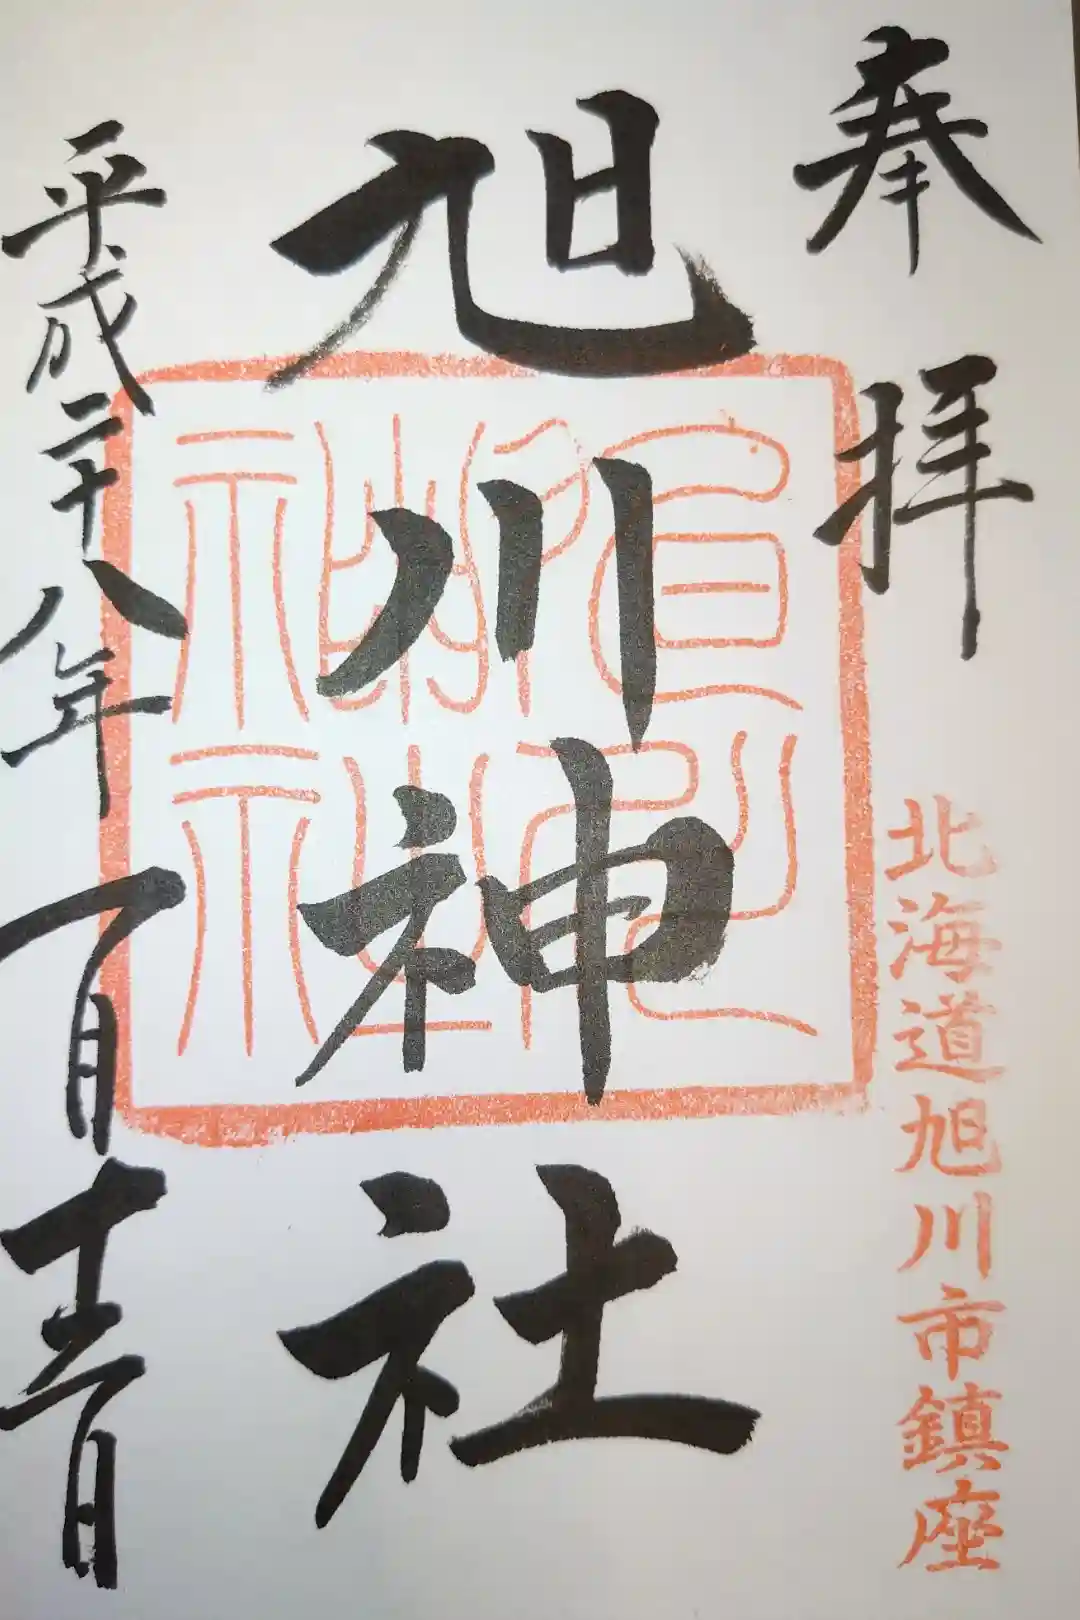 奉拝
北海道旭川市鎮座
旭川神社
平成二十八年一月十二日